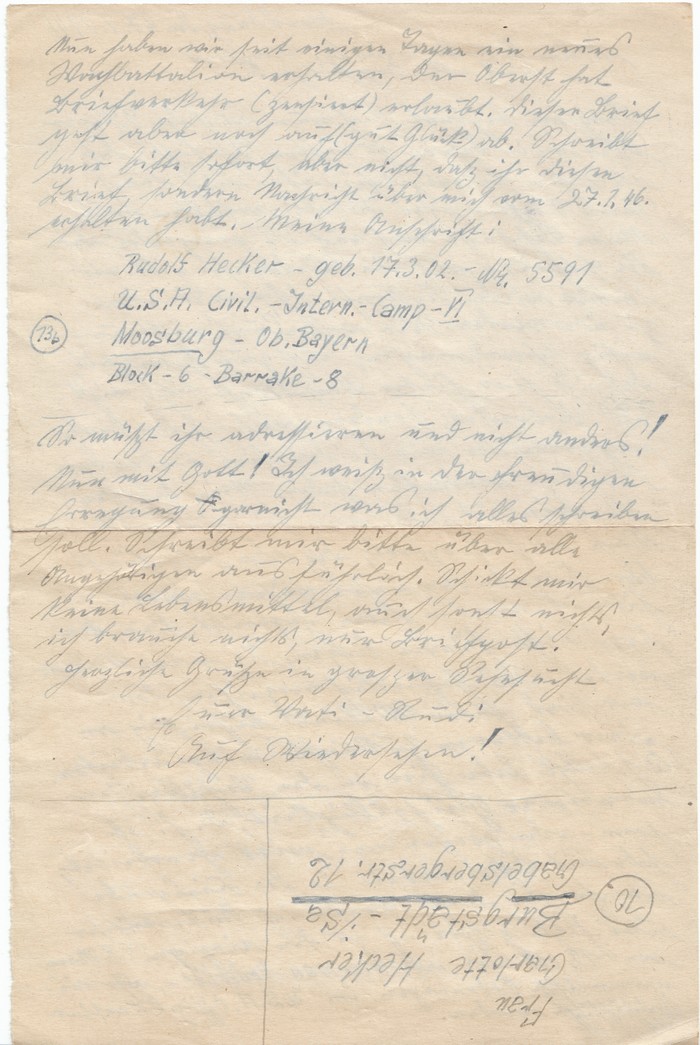 Nun haben wir seit einigen Tagen ein neues
Wachbattalion erhalten, der Oberst hat
Briefverkehr (zensiert) erlaubt. Dieser Brief
geht aber noch auf (gut Glück) ab. Schreibt
mir bitte sofort, aber nicht, daß ihr diesen
Brief, sondern Nachricht über mich vom 27.1.46.
erhalten habt. Meine Anschrift:
Rudolf Hecker - geb. 17.3.02. - Nr. 5591
U.S.A. Civil. - Intern. - Camp - VI
13b Moosburg - Ob. Bayern
Block - 6 - Barrake - 8
So müßt ihr adressieren und nicht anders!
Nur mit Gott! Ich weiß in der freudigen
Erregung garnicht was ich alles schreiben
soll. Schreibt mir bitte über alle
Angehörigen ausführlich. Schickt mir
keine Lebensmittel, auch sonst nichts,
ich brauche nichts, nur Briefpost.
Herzliche Grüße in großer Sehnsucht
Euer Vati - Rudi
Auf Wiedersehen!
Frau
Charlotte Hecker
10. Burgstädt - i/Sa
Gabelsbergerstr. 12